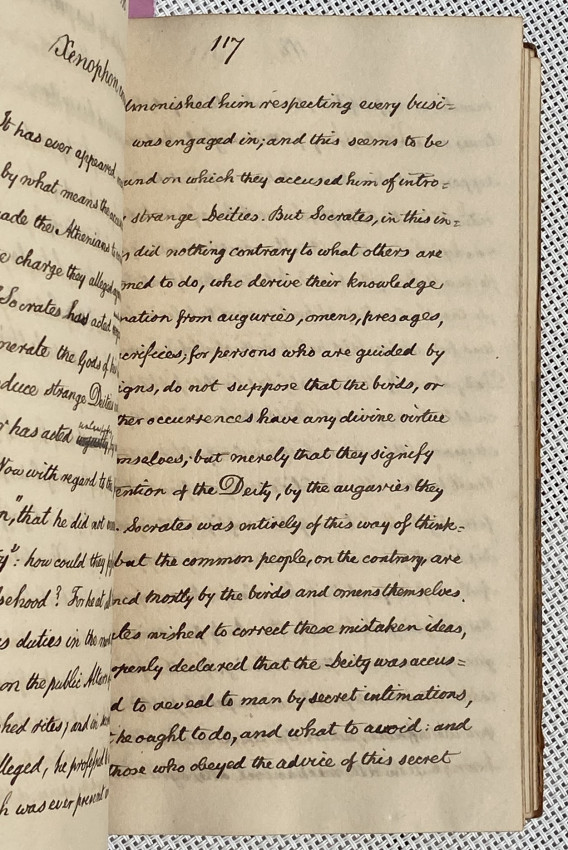 Xenophon
It has ever appeared
by what means the
the Athenians
charge they alleged
Socrates has acted
the Gods of
strange Deities
has acted
Now with regard to
that he did not
how could they
For he at
duties in the
on the public Altars
rites; and in
he professed
was ever present
117
him respecting every busi=
was engaged in; and this seems to be
on which they accused him of intro=
strange Deities. But Socrates, in this in=
did nothing contrary to what others are
to do, who derive their knowledge
from auguries, omens, presages,
for persons who are guided by
do not suppose that the birds, or
occurrences have any divine virtue
but merely that they signify
of the Deity, by the auguries they
Socrates was entirely of this way of think=
but the common people, on the contrary, are
mostly by the birds and omens themselves.
wished to correct these mistaken ideas,
openly declared that the Deity was accus=
to reveal to man by secret intimations,
he ought to do, and what to avoid: and
those who obeyed the advice of this secret